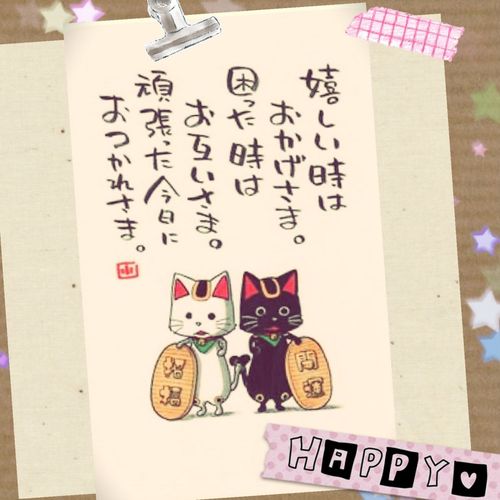 嬉しい時は
おかげさま。
困った時は
お互いさま。
頑張った今日に
おつかれさま。
招福
開運
HAPPY♥